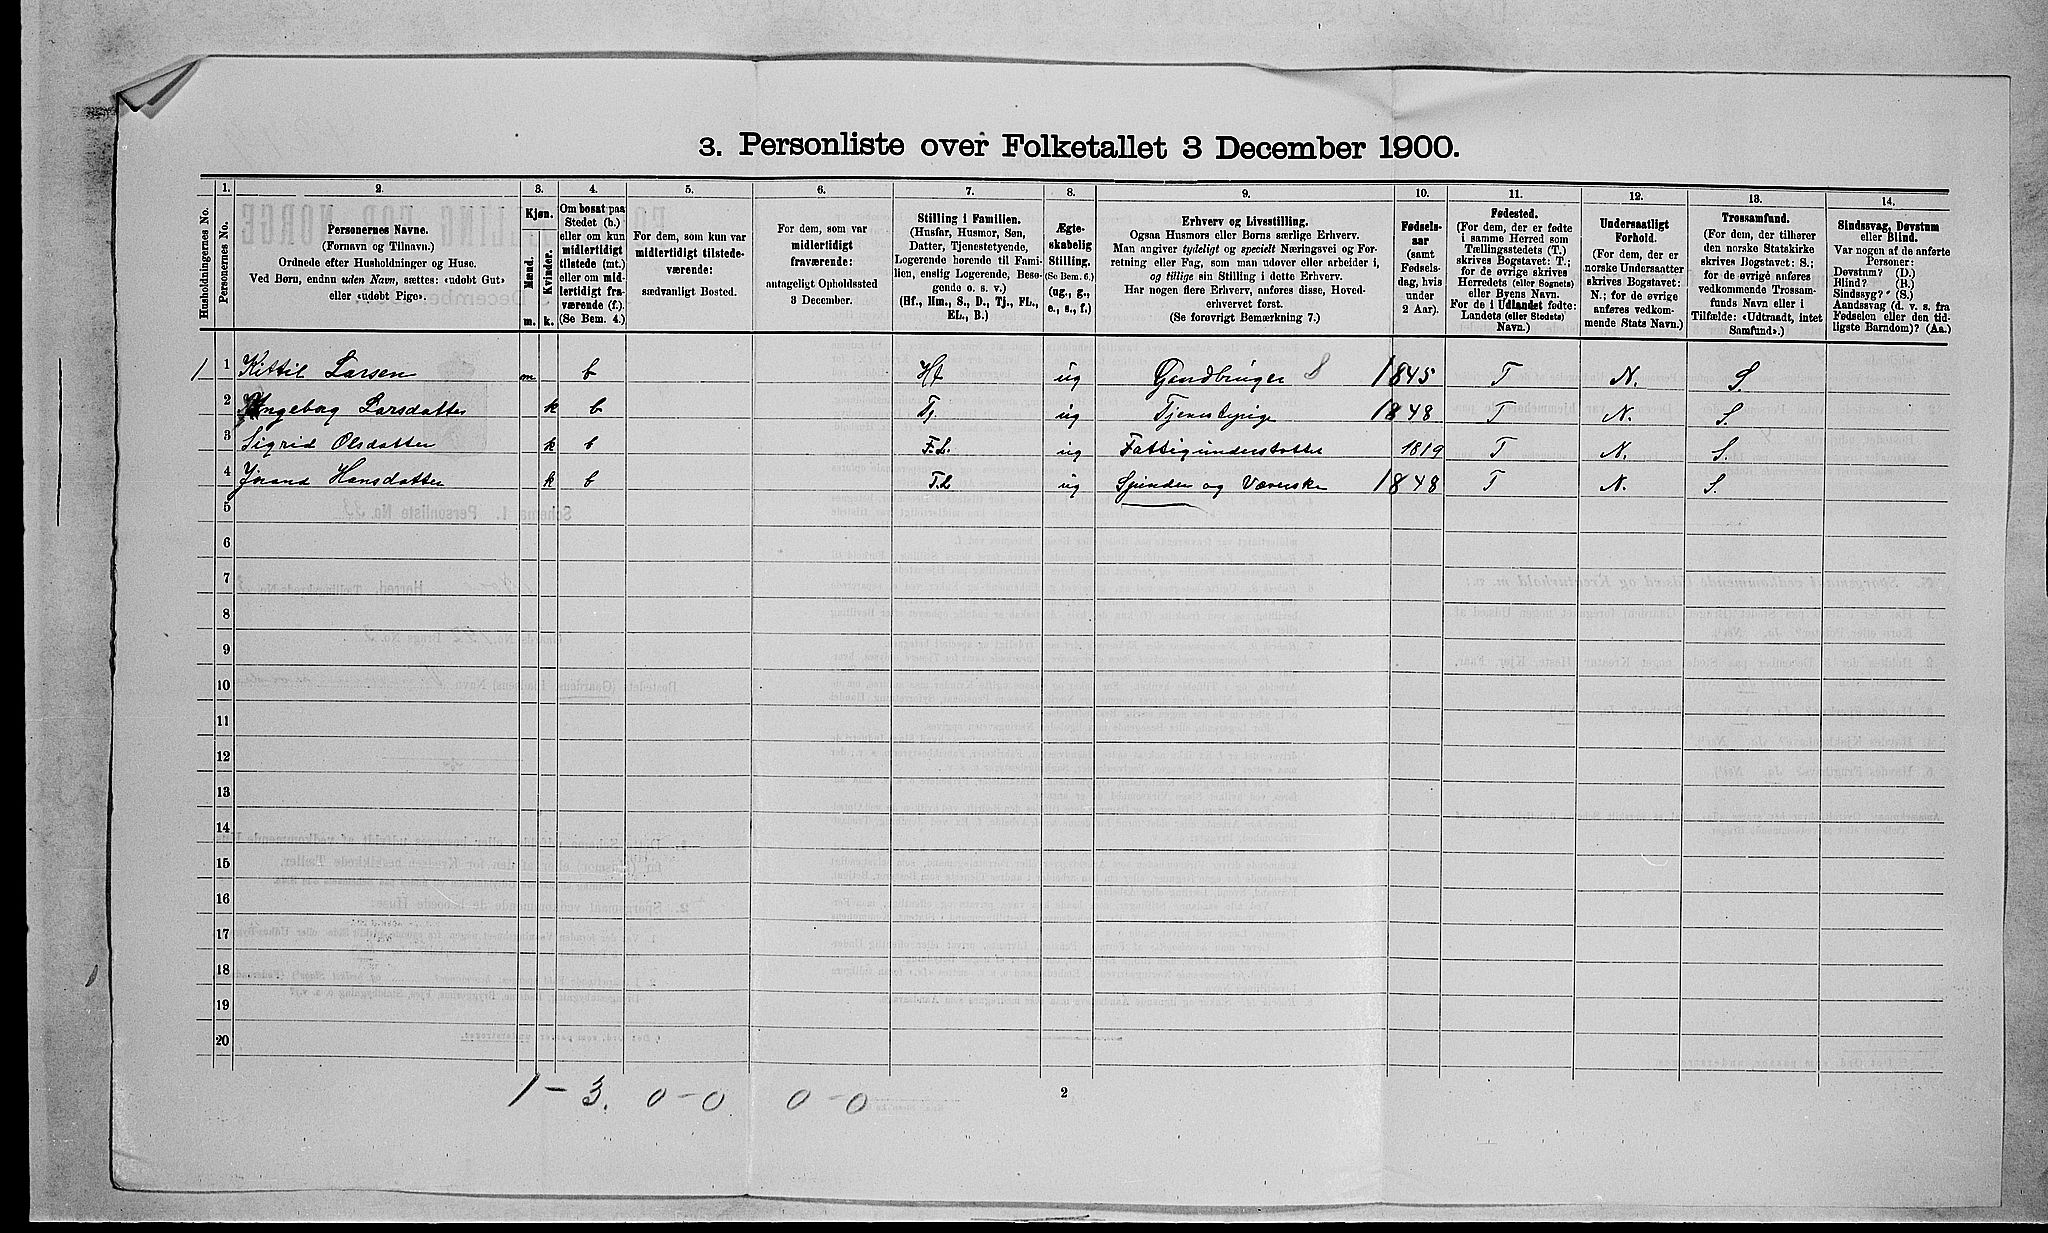 3. Personliste over Folketallet 3 December 1900.
Husholdningernes No.
1.
Personernes No.
2.
Personernes Navne.
(Fornavn og Tilnavn.)
Ordnede efter Husholdninger og Huse.
Ved Børn, endnu uden Navn, sættes: «udøbt Gut»
eller «udøbt Pige».
3.
Kjøn.
Mænd.
Kvinder.
m. k.
4.
Om bosat paa
Stedet (b.)
eller om kun
midlertidigt
tilstede (mt.)
eller om mid-
lertidigt fra-
værende (f.).
(Se Bem. 4.)
5.
For dem, som kun var
midlertidigt tilstede-
værende:
sædvanligt Bosted.
6.
For dem, som var
midlertidigt
fraværende:
antageligt Opholdssted
3 December.
7.
Stilling i Familien.
(Husfar, Husmor, Søn,
Datter, Tjenestetyende,
Logerende hørende til Fami-
lien, enslig Logerende, Besø-
gende o. s. v.)
(Hf., Hm., S., D., Tj., FL.,
EL., B.)
8.
Ægte-
skabelig
Stilling.
(Se Bem. 6.)
(ug., g.,
e., s., f.)
9.
Erhverv og Livsstilling.
Ogsaa Husmors eller Børns særlige Erhverv.
Man angiver tydeligt og specielt Næringsvei og For-
retning eller Fag, som man udøver eller arbeider i,
og tillige sin Stilling i dette Erhverv.
Har nogen flere Erhverv, anføres disse, Hoved-
erhvervet først.
(Se forøvrigt Bemærkning 7.)
10.
Fødsels-
aar
(samt
Fødsels-
dag, hvis
under
2 Aar).
11.
Fødested.
(For dem, der er fødte
i samme Herred som
Tællingsstedets (T.)
skrives Bogstavet: T.;
for de øvrige skrives
Herredets (eller Sognets)
eller Byens Navn.
For de i Udlandet fødte:
Landets (eller Stedets)
Navn.)
12.
Undersaatligt
Forhold.
(For dem, der er
norske Undersaatter
skrives Bogstavet:
N.; for de øvrige
anføres vedkom-
mende Stats Navn.)
13.
Trossamfund.
(For dem, der tilhører
den norske Statskirke
skrives Bogstavet: S.;
for de øvrige anføres
vedkommende Trossam-
funds Navn eller i
Tilfælde: «Udtraadt, intet
Samfund».)
14.
Sindssvag, Døvstum
eller Blind.
Var nogen af de anførte
Personer:
Døvstum? (D.)
Blind? (B.)
Sindssyg? (S.)
Aandssvag (d. v. s. fra
Fødselen eller den tid-
ligste Barndom)? (Aa.)
1 1 Kittil Larsen m b Hf ug Gaardbruger 8 1845 T N. S.
2 Ingeborg Larsdatter k b Tj ug Tjenestepige 1848 T N. S.
3 Sigrid Olsdatter k b F.L. ug Fattigunderstøttet 1819 T N. S.
4 Jorand Hansdatter k b F.L ug Spinder og Væverske 1848 T N. S.
5
6
7
8
9
10
11
12
13
14
15
16
17
18
19
20
1 – 3. 0 – 0 0 – 0
2